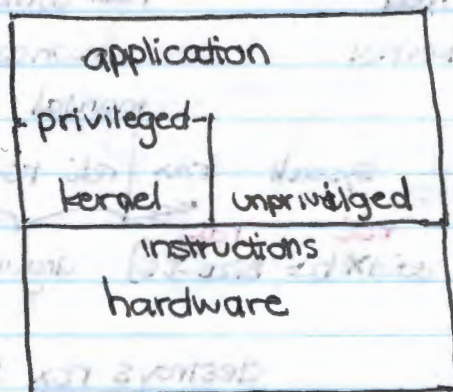 application
privileged
kernel unprivilged
instructions
hardware